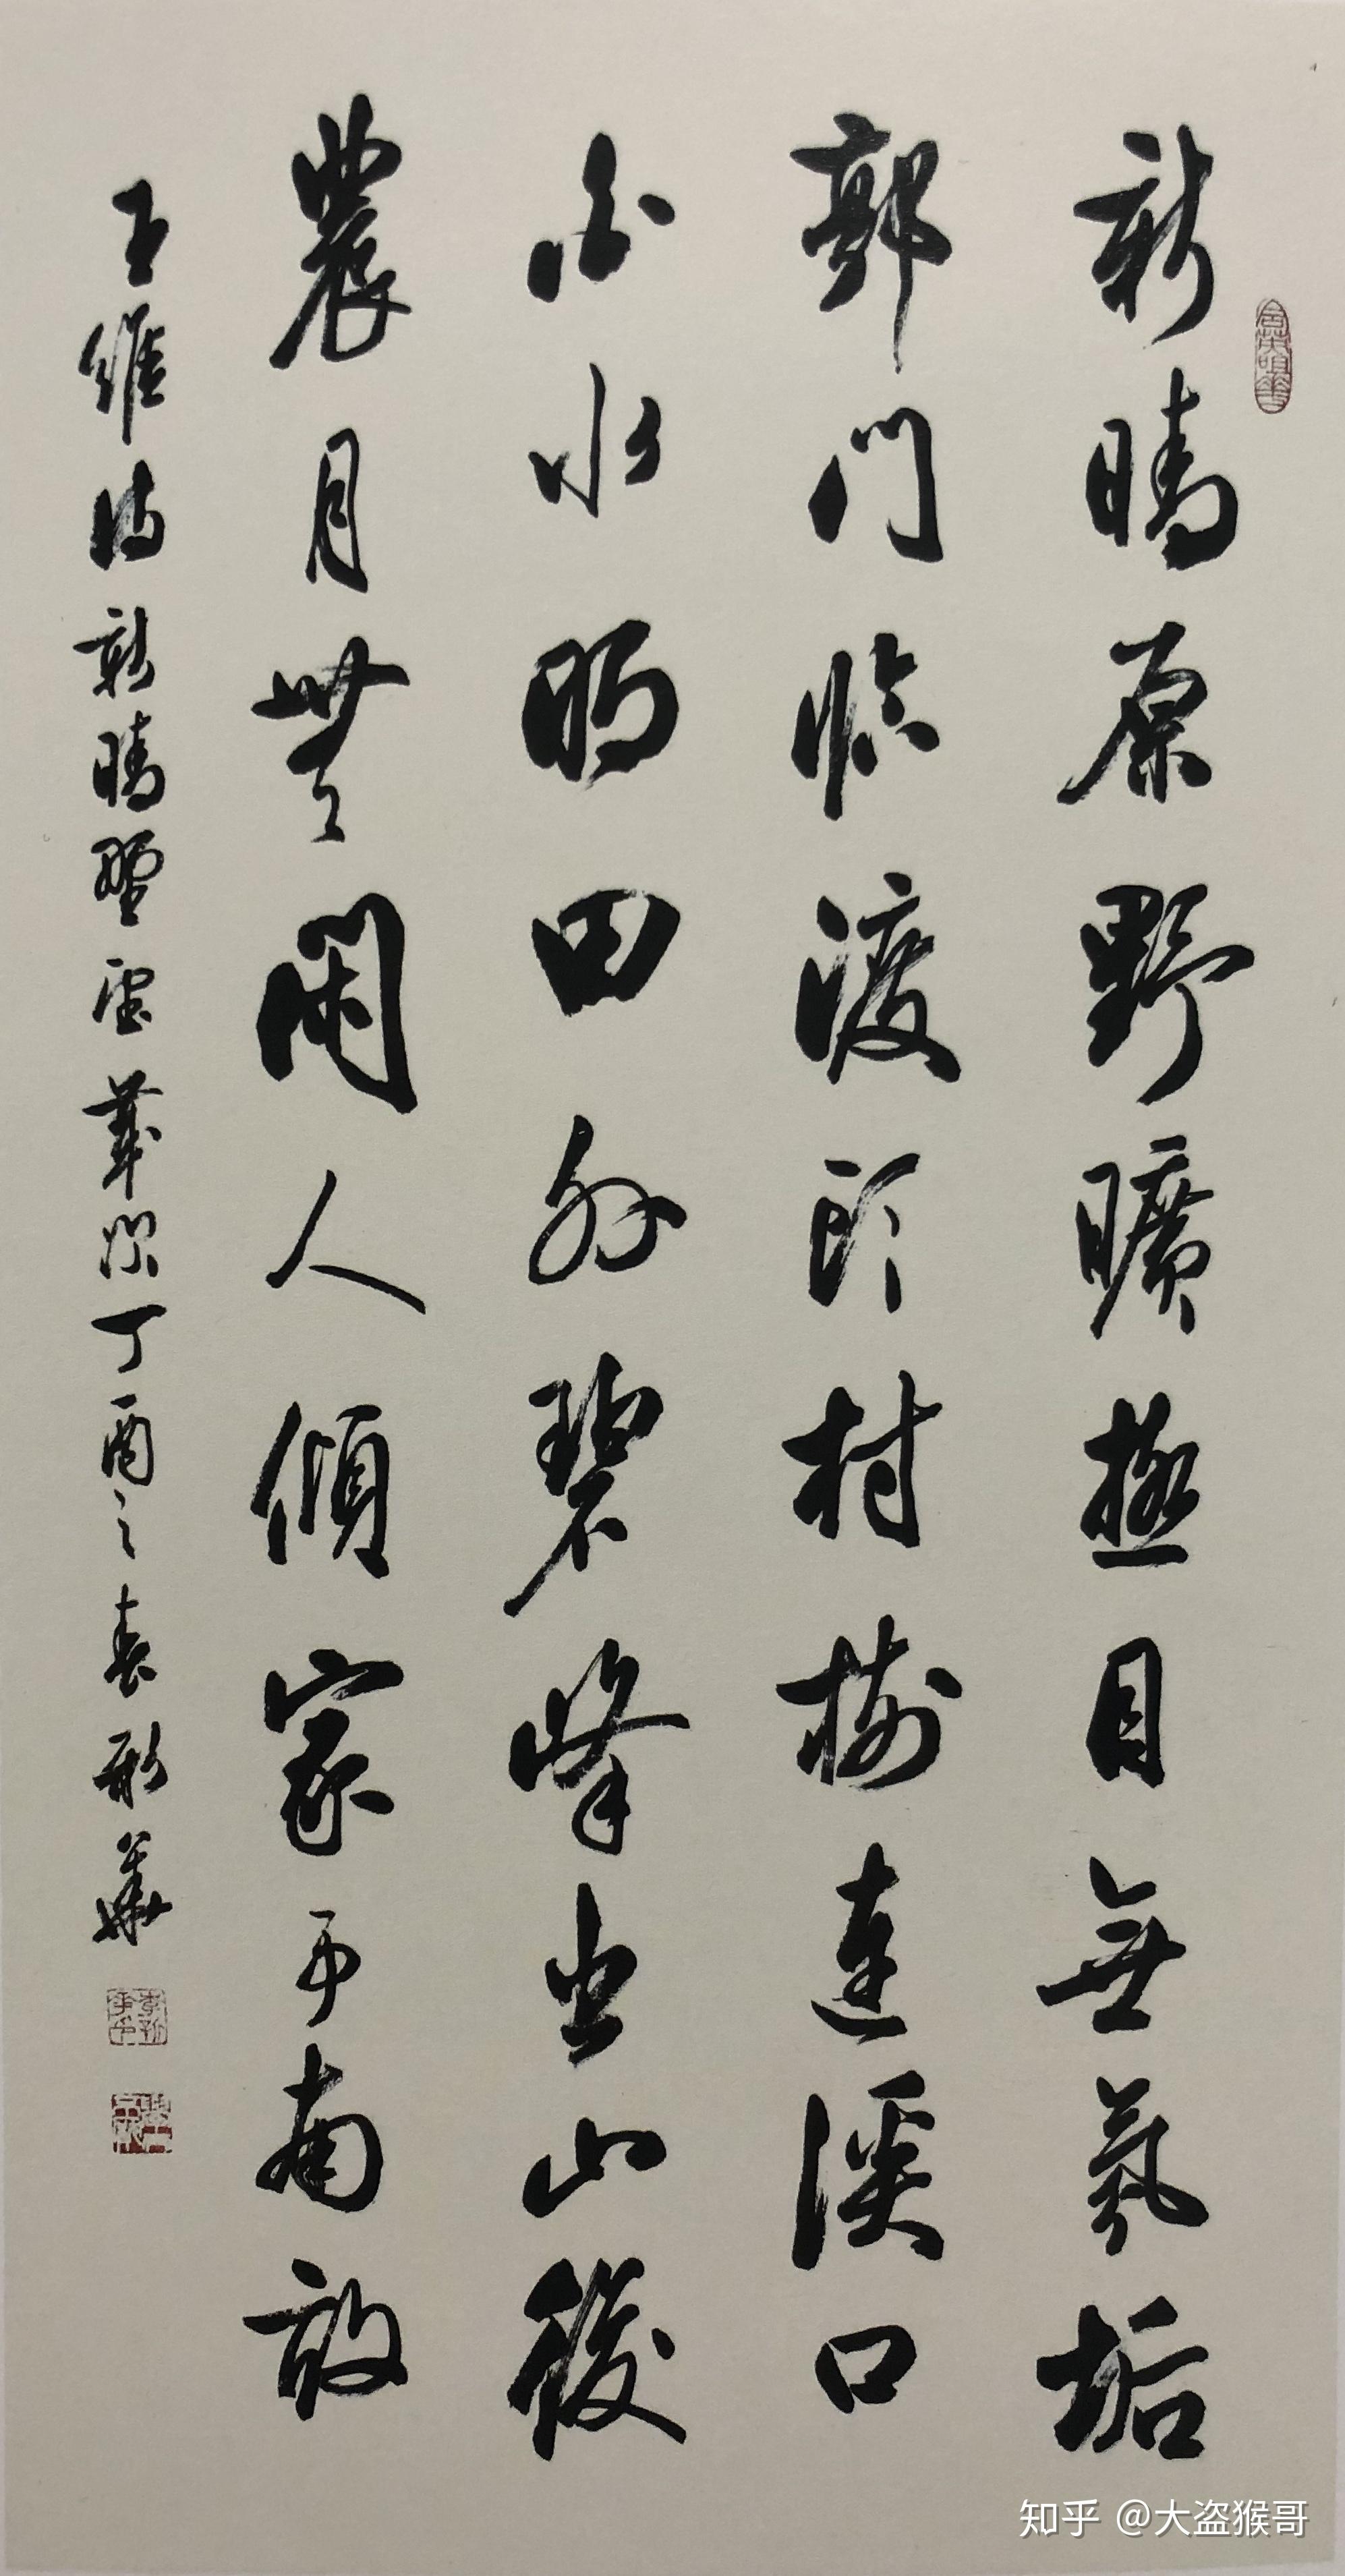 新晴原野曠極目無氛垢
郭門臨渡頭村樹連溪口
白水明田外碧峰出山後
農月無閑人傾家事南畝
王維詩新晴野望華深丁酉之春彤華
知乎 @大盗猴哥